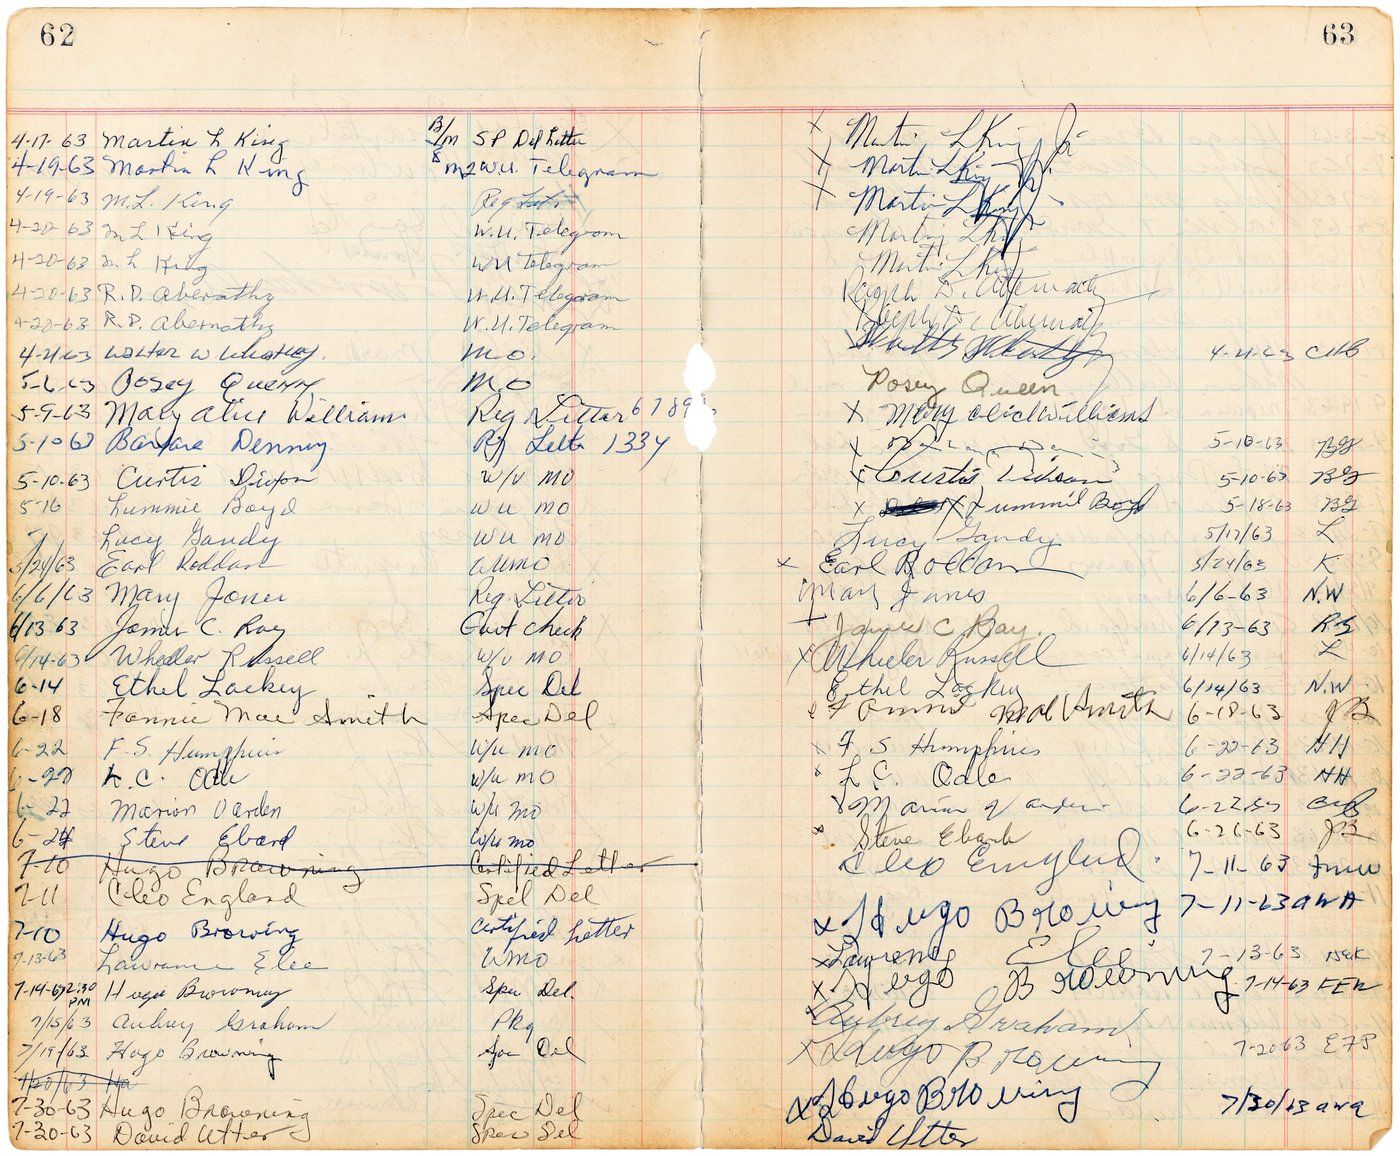 62
63
4-17-63 Martin L King B/m SP Del Letter X Martin L King Jr
4-19-63 Martin L King B m 2 W.U. Telegram X Martin L King Jr
4-19-63 M.L. King Reg Letter X Martin L King Jr
4-20-63 M L King W.U. Telegram Martin L King
4-20-63 M L King WU Telegram Martin L King
4-20-63 R.D. Aberathy W.U. Telegram Ralph D. Abernathy
4-20-63 R.D. Abernathy W.U. Telegram Ralph D. Abernathy
Walter W M.O. CHB
Posey M.O Posey Queen
5-9-63 Mary Alice William Reg Letter 6789 X Mary Alice Williams
5-10 63 Barbara Denny Rg Lettr 1334 X 5-10-63 BG
5-10-63 Curtis Dixon W/U MO X Curtis Dixson 5-10-63 BG
5-16 Lummie Boyd WU MO X X Lummie Boyd 5-18-63 BG
Lucy Gandy WU MO Lucy Gandy 5/17/63 L
5/24/63 Earl Roddam WUMO X Earl Roddam 5/24/63 K
6/6/63 Mary Jones Reg. Letter Mary Jones 6/6-63 N.W
6/13 63 James C. Ray Govt check + James C Ray 6/13-63 RG
6/14-63 Wheeler Russell W/U MO X Wheeler Russell 6/14/63 L
6-14 Ethel Lackey Spec Del Ethel Lackey 6/14/63 N.W
6-18 Fannie Mae Smith Spec Del Fannie Mae Smith 6-18-63 JB
6-22 F.S. Humphries W/U MO X F S Humphries 6-22-63 HH
6-22 L.C. Odle W/U MO X L C. Odle 6-22-63 HH
6-22 Marion Varden W/U MO X Marion Varden
6-24 Steve Ebard W/U MO X Steve Ebard 6-26-63 JB
7-10 Hugo Browning Certified Letter Cleo England 7-11-63
7-11 Cleo England Spel Del
7-10 Hugo Browing Certified Letter X Hugo Browing 7-11-63 AWA
7-13-63 Lawrence Elee WMO X Lawrence Elee 7-13-63
7-14-63 2:30 PM Hugo Browning Spec Del. X Hugo Browning 7-14-63 FEW
7/15/63 Aubrey Graham Pkg Aubrey Graham
7/19/63 Hugo Browning Spc Del X Hugo Browning 7-20 63 EFP
7/20/63 Ha
7-30-63 Hugo Browning Spec Del X Hugo Browning 7/30/63 awa
7-30-63 David Utter Spec Del David Utter